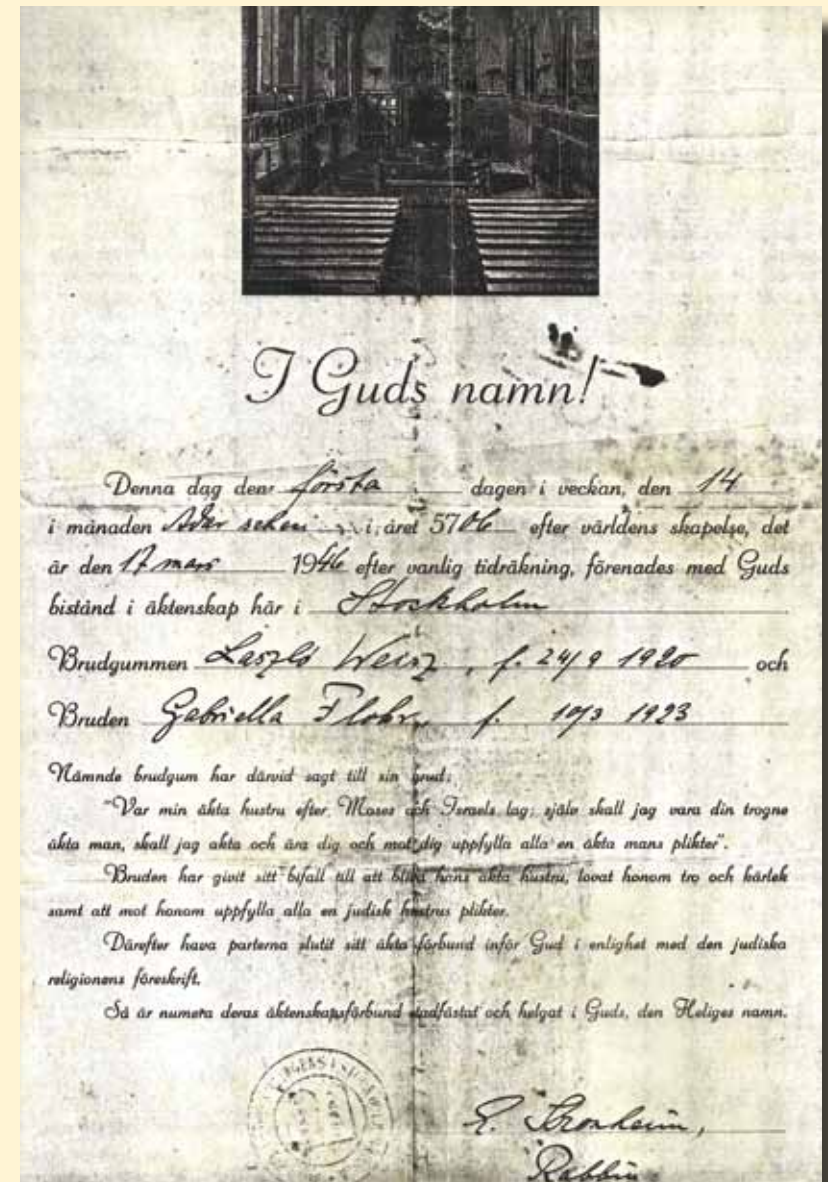 I Guds namn!
Denna dag den första dagen i veckan, den 14
i månaden Adar scheni i året 5706 efter världens skapelse, det
är den 17 mars 1946 efter vanlig tidräkning, förenades med Guds
bistånd i äktenskap här i Stockholm
Brudgummen Laszló Weisz, f. 24/9 1920 och
Bruden Gabriella Flohr, f. 10/3 1923
Nämnde brudgum har därvid sagt till sin brud:
"Var min äkta hustru efter Moses och Israels lag; själv skall jag vara din trogne
äkta man, skall jag akta och ära dig och mot dig uppfylla alla en äkta mans plikter".
Bruden har givit sitt bifall till att bliva hans äkta hustru, lovat honom tro och kärlek
samt att mot honom uppfylla alla en judisk hustrus plikter.
Därefter hava parterna slutit sitt äkta förbund inför Gud i enlighet med den judiska
religionens föreskrift.
Så är numera deras äktenskapsförbund stadfästat och helgat i Guds, den Heliges namn.
Rabbin